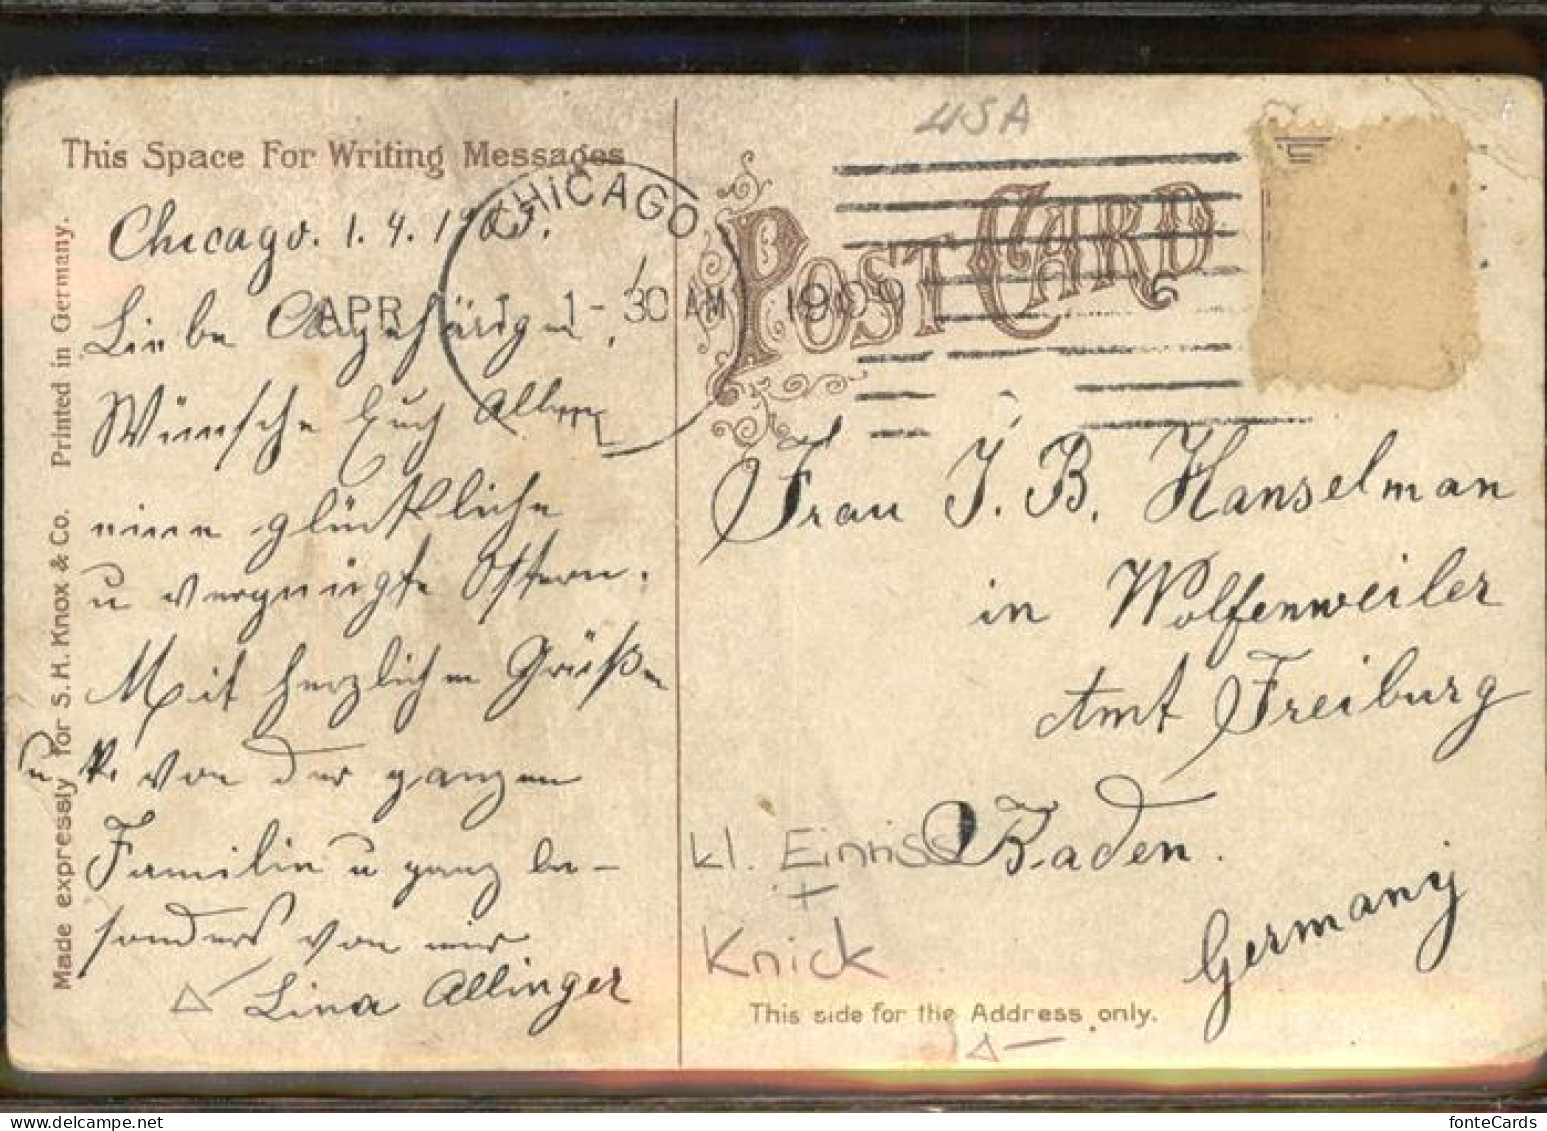 USA
This Space For Writing Messages
CHICAGO
APR 1 1-30 AM 1909
POST CARD
Chicago. 1. 4. 1909.
Liebe Angehörigen,
Wünsche Euch Allen
einen glückliche
u vergnügte Ostern.
Mit herzlichen Grüßen
von der ganzen
Familie u ganz be-
sonders von mir
Lina Allinger
Made expressly for S. H. Knox & Co. Printed in Germany.
Frau J. B. Hanselman
in Wolfenweiler
Amt Freiburg
Baden.
Germany
kl. Einriss
+
Knick
This side for the Address only.
fonteCards